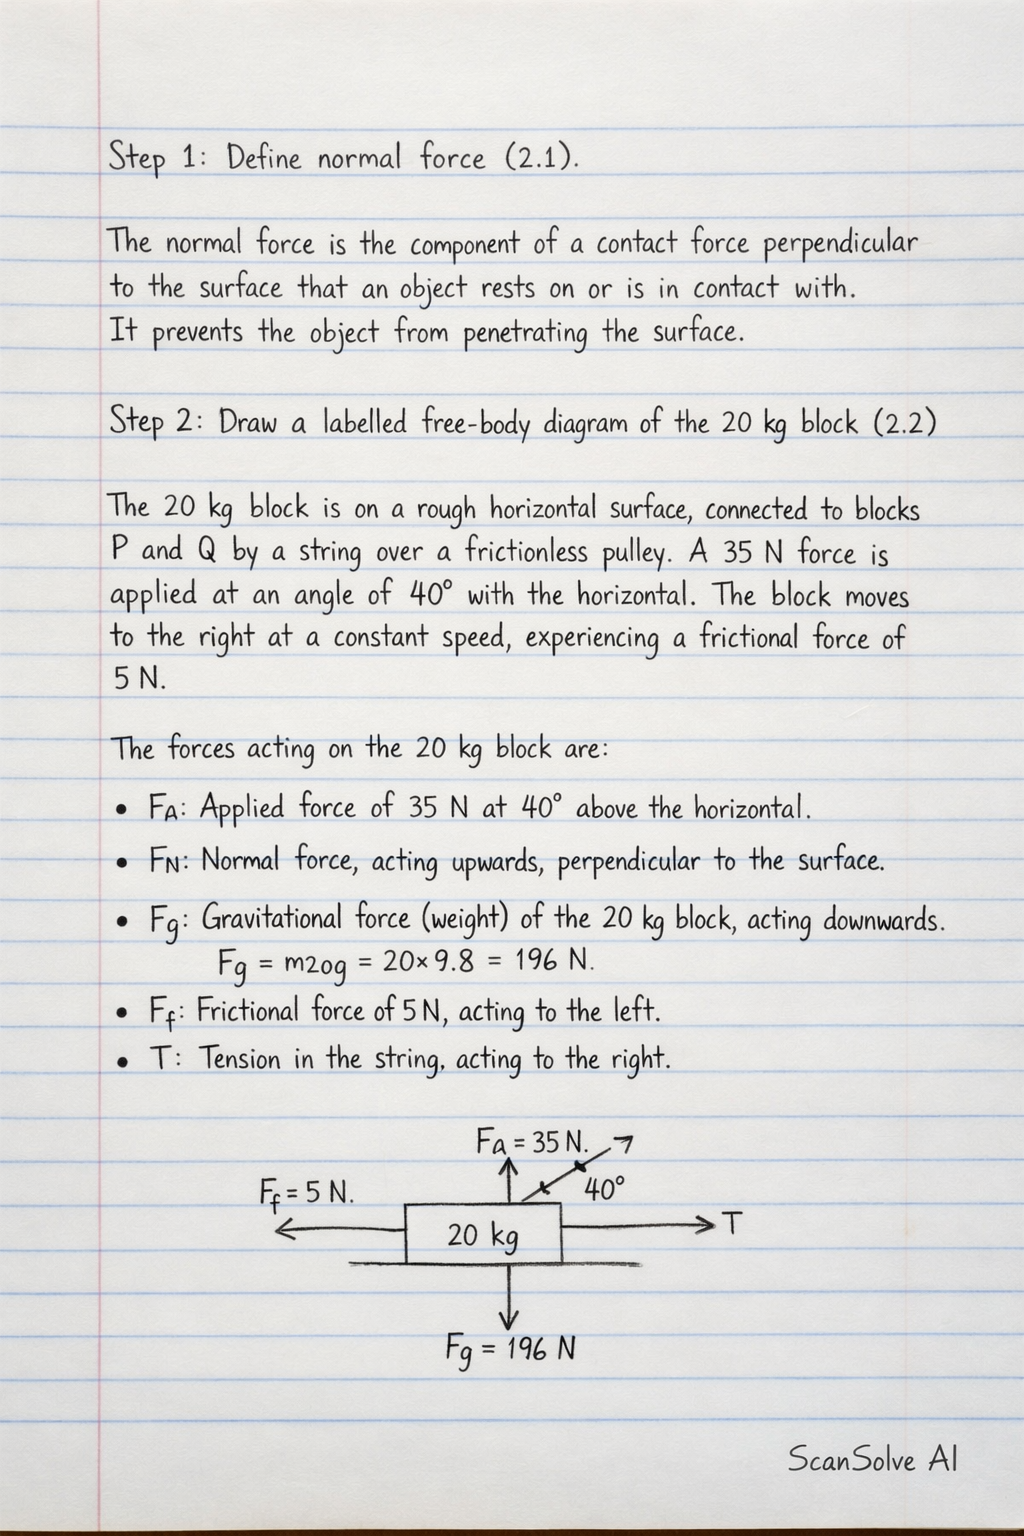 Step 1: Define normal force (2.1).
The normal force is the component of a contact force perpendicular
to the surface that an object rests on or is in contact with.
It prevents the object from penetrating the surface.
Step 2: Draw a labelled free-body diagram of the 20 kg block (2.2)
The 20 kg block is on a rough horizontal surface, connected to blocks
P and Q by a string over a frictionless pulley. A 35 N force is
applied at an angle of 40° with the horizontal. The block moves
to the right at a constant speed, experiencing a frictional force of
5 N.
The forces acting on the 20 kg block are:
• FA: Applied force of 35 N at 40° above the horizontal.
• FN: Normal force, acting upwards, perpendicular to the surface.
• Fg: Gravitational force (weight) of the 20 kg block, acting downwards.
Fg = m20g = 20×9.8 = 196 N.
• Ff: Frictional force of 5 N, acting to the left.
• T: Tension in the string, acting to the right.
Fa = 35 N.
Ff = 5 N.
40°
20 kg
T
Fg = 196 N
ScanSolve AI